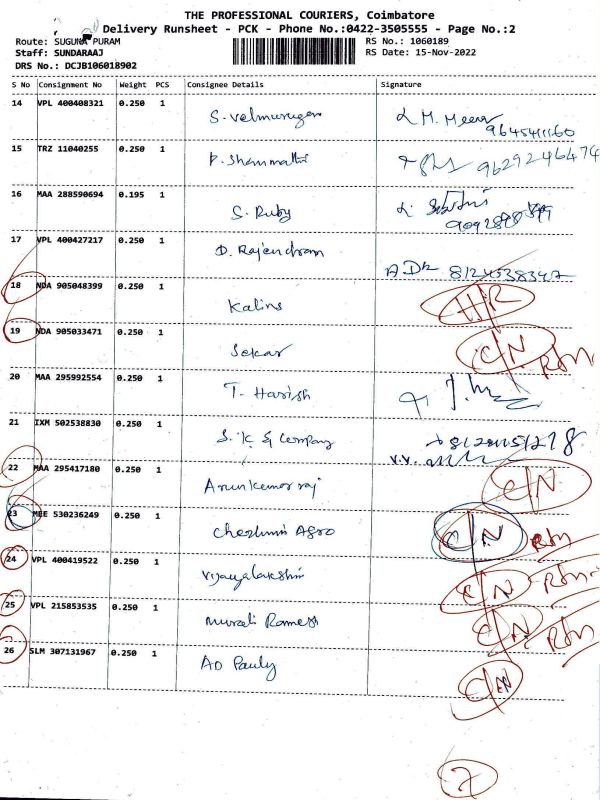 THE PROFESSIONAL COURIERS, Coimbatore
Delivery Runsheet - PCK - Phone No.:0422-3505555 - Page No.:2
Route: SUGUNA PURAM RS No.: 1060189
Staff: SUNDARAAJ RS Date: 15-Nov-2022
DRS No.: DCJB106018902
S No Consignment No Weight PCS Consignee Details Signature
14 VPL 400408321 0.250 1 S. Velmurugan M. Meena
9645411160
15 TRZ 11040255 0.250 1 P. Shanmathi 9629246474
16 MAA 288590694 0.195 1 S. Ruby
17 VPL 400427217 0.250 1 D. Rajendran 8124538347
18 NDA 905048399 0.250 1 Kalins H/R
19 NDA 905033471 0.250 1 Sekar C/N Rtn
20 MAA 295992554 0.250 1 T. Harish
21 IXM 502538830 0.250 1 S. K & Company
22 MAA 295417180 0.250 1 Arunkumar raj C/N
23 MEE 530236249 0.250 1 Agro C/N Rtn
24 VPL 400419522 0.250 1 Vijayalakshmi C/N Rtn
25 VPL 215853535 0.250 1 Murali Ramesh C/N Rtn
26 SLM 307131967 0.250 1 AD Pauly C/N
7